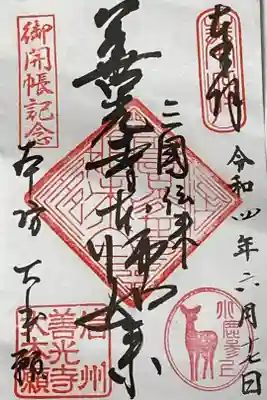 奉拝
令和四年六月十七日
三国伝来
善光寺如来
御開帳記念
本坊 大本願
信州
善光寺
大本願